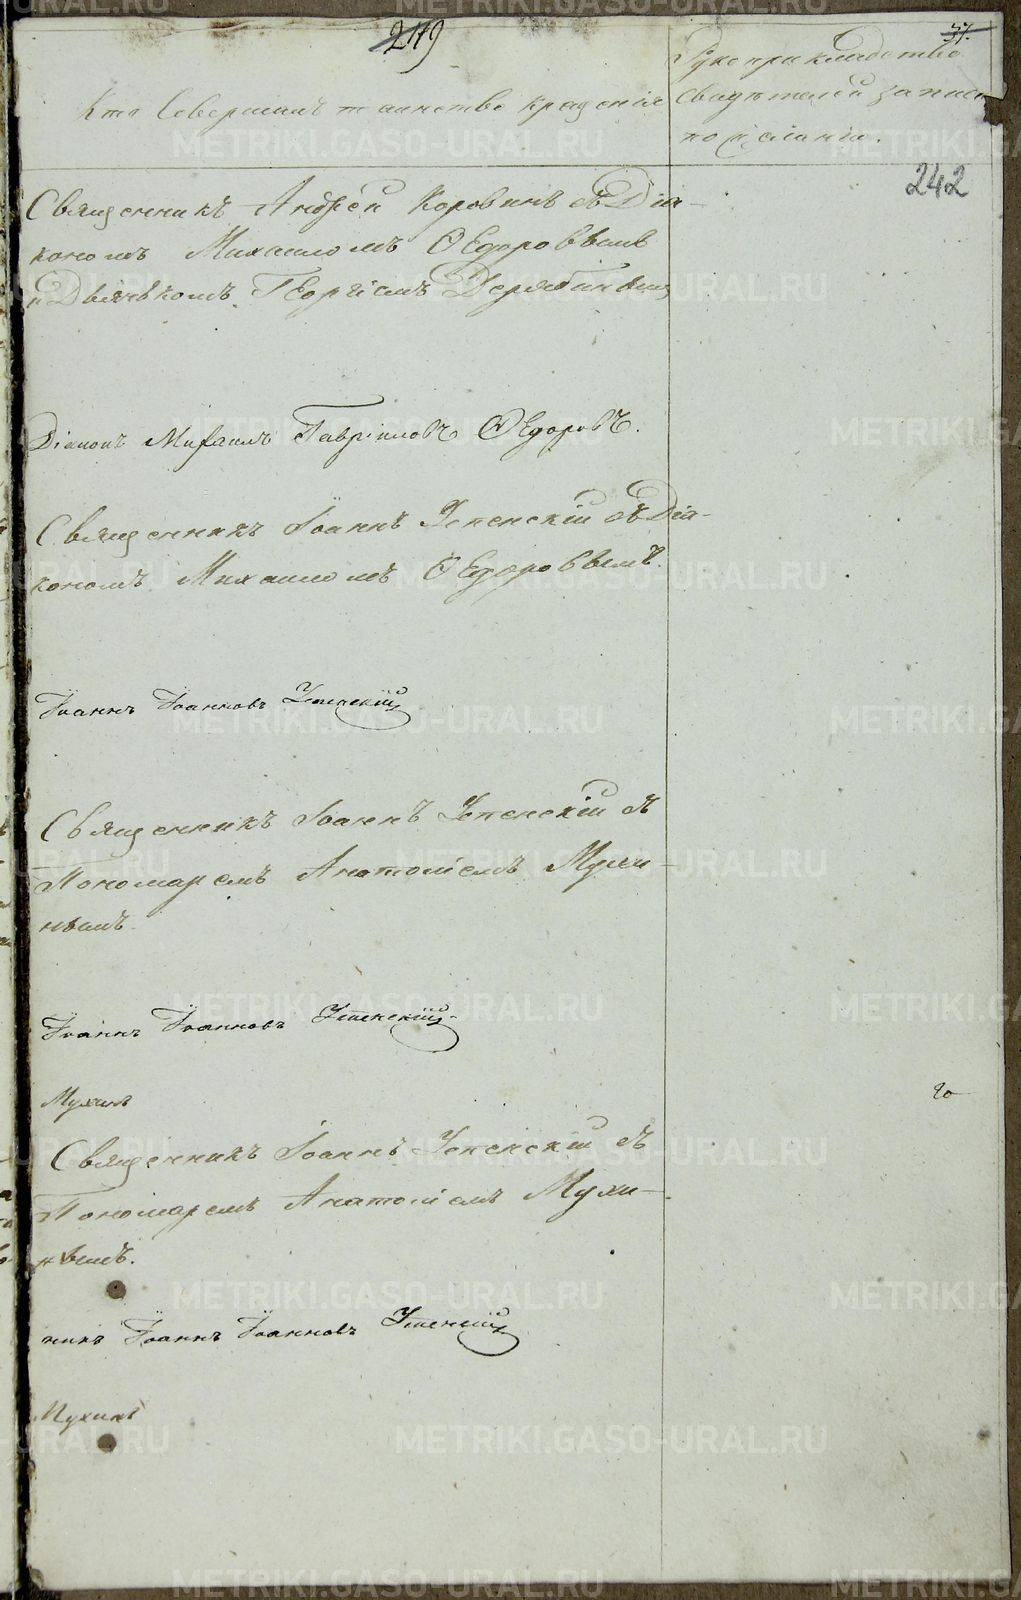 249
37.
Кто совершалъ таинство крещенія
Рукоприкладство
свидѣтелей записи
по желанію.
242
Священникъ Андрей Коровинъ съ Діа-
кономъ Михаиломъ Ѳедоровымъ
и Дьячкомъ Георгіемъ Дерябинымъ
Діаконъ Михаилъ Гавріиловъ Ѳедоровъ.
Священникъ Іоаннъ Успенскій съ Діа-
кономъ Михаиломъ Ѳедоровымъ.
Іоаннъ Іоанновъ Успенскій
Священникъ Іоаннъ Успенскій съ
Пономаремъ Анатоліемъ Мухи-
нымъ.
Іоаннъ Іоанновъ Успенскій
Мухинъ
Священникъ Іоаннъ Успенскій съ
Пономаремъ Анатоліемъ Мухи-
нымъ.
никъ Іоаннъ Іоанновъ Успенскій
Мухинъ
METRIKI.GASO-URAL.RU